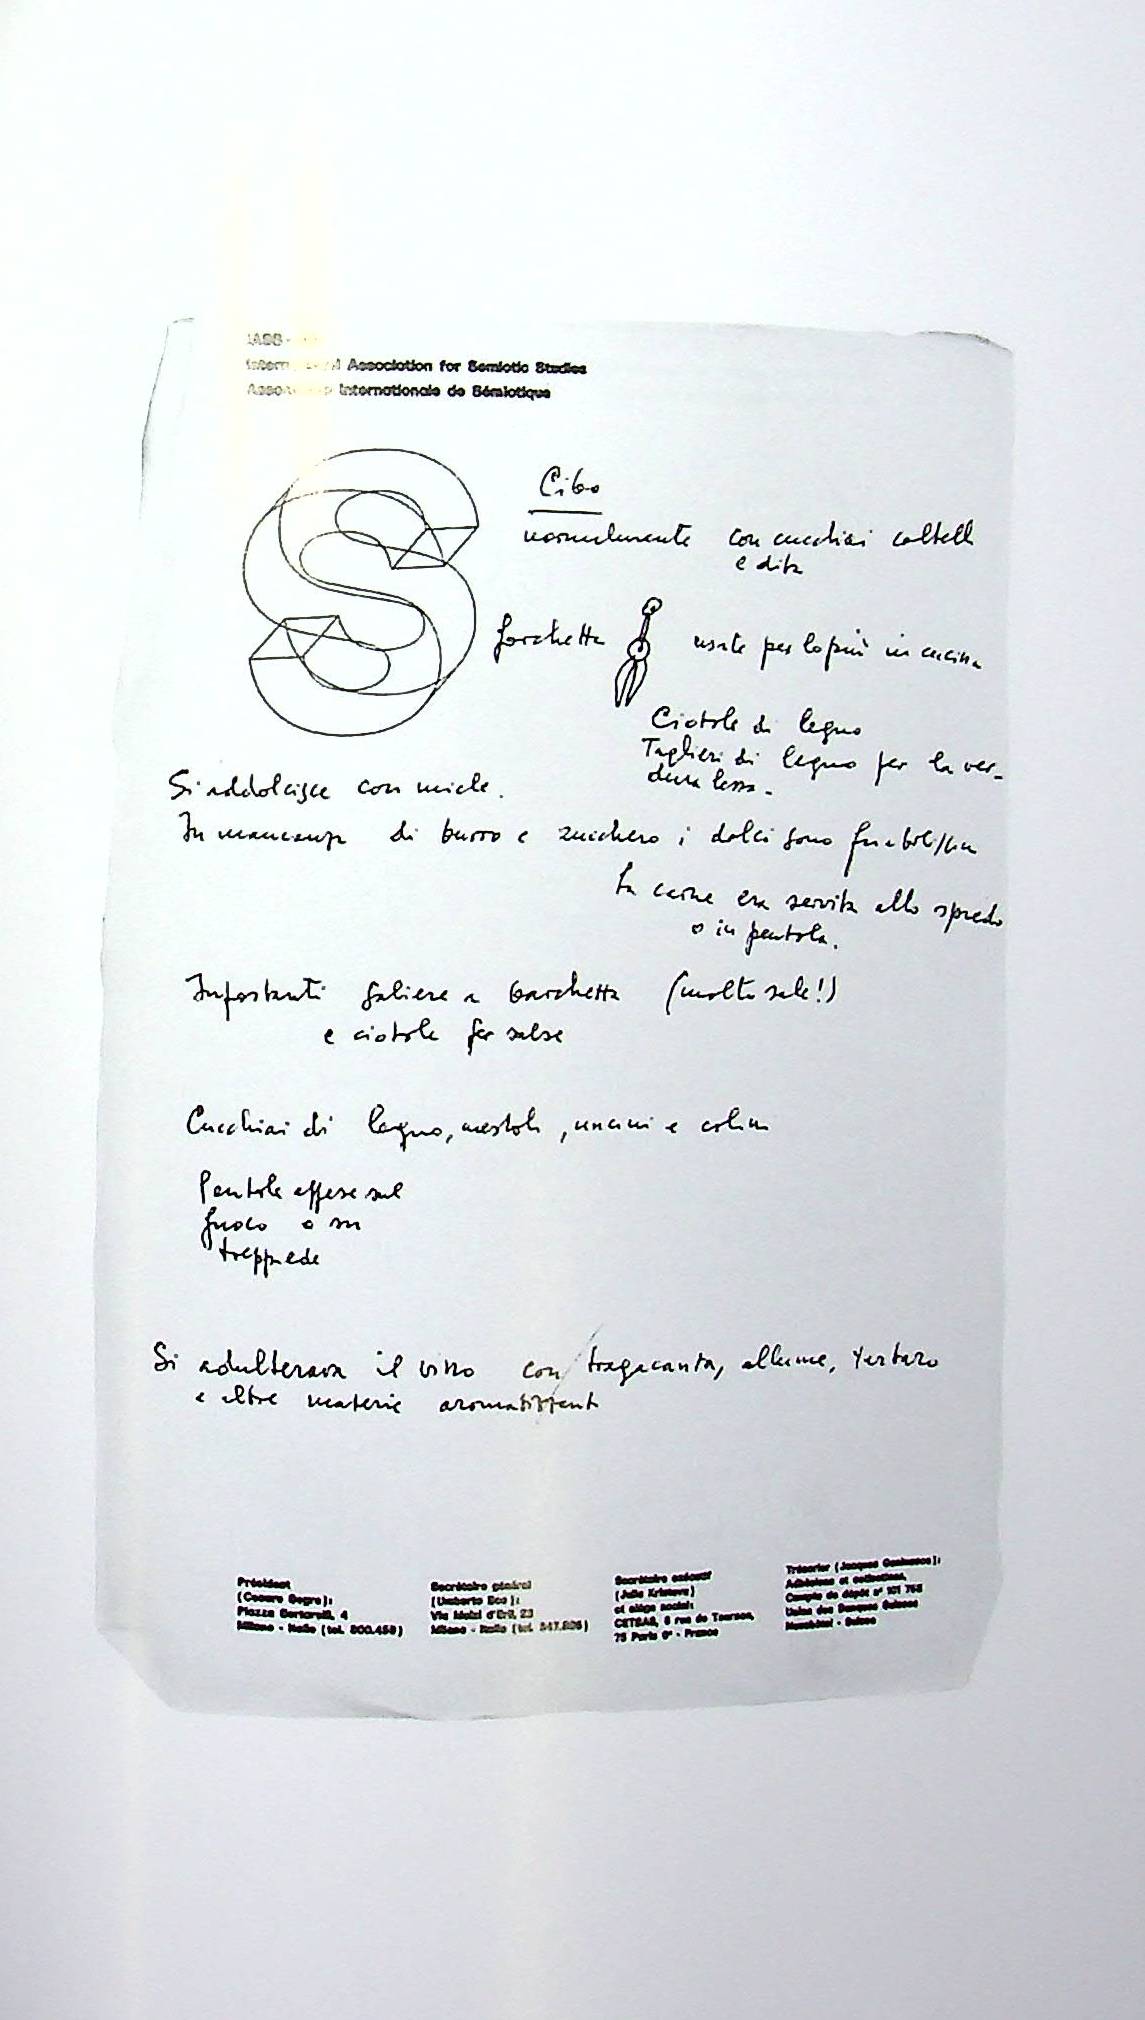 IASS -
International Association for Semiotic Studies
Association Internationale de Sémiotique
Cibo
normalmente con cucchiai coltelli
e dita
forchetta usate per lo più in cucina
Ciotole di legno
Taglieri di legno per la ver-
dura lessa.
Si addolcisce con miele.
In mancanza di burro e zucchero i dolci sono
La carne era servita allo spiedo
o in pentola.
Importanti saliere a barchetta (molto sale!)
e ciotole per salse
Cucchiai di legno, mestoli, uncini e colini
Pentole appese sul
fuoco o su
treppiede
Si adulterava il vino con tragacanta, allume, tartaro
e altre materie aromatizzanti
Président
(Cesare Segre):
Piazza Bertarelli, 4
Milano - Italie (tel. 800.458)
Secrétaire général
(Umberto Eco):
Via Melzi d'Eril, 23
Milano - Italie (tel. 347.826)
Secrétaire exécutif
(Julia Kristeva)
et siège social:
CETSAS, 6 rue de Tournon,
75 Paris 6e - France
Trésorier (Jacques Geninasca):
Adhésions et cotisations,
Compte de dépôt n° 101 763
Union des Banques Suisses
Neuchâtel - Suisse